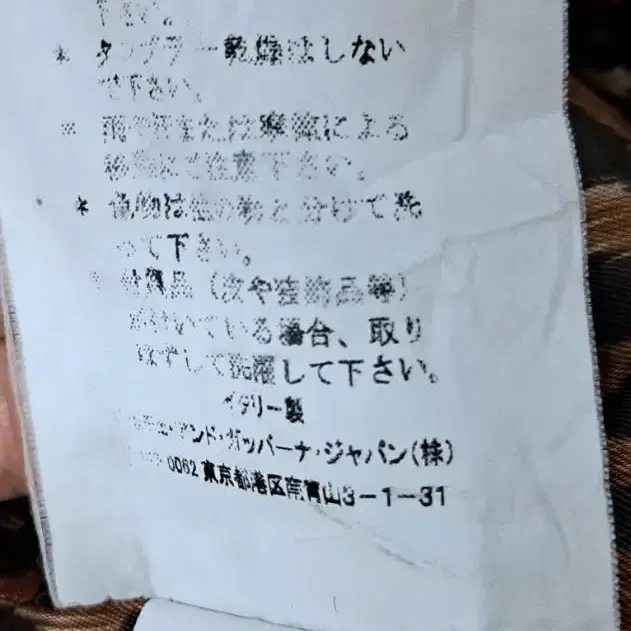 下さい。
* タンブラー乾燥はしない
で下さい。
* 雨や汗または摩擦による
移染にご注意下さい。
* 色物は他の物と分けて洗
って下さい。
* 付属品(皮や装飾品等)
が付いている場合、取り
はずして洗濯して下さい。
イタリー製
ドルチェ・アンド・ガッバーナ・ジャパン(株)
0062 東京都港区南青山3-1-31